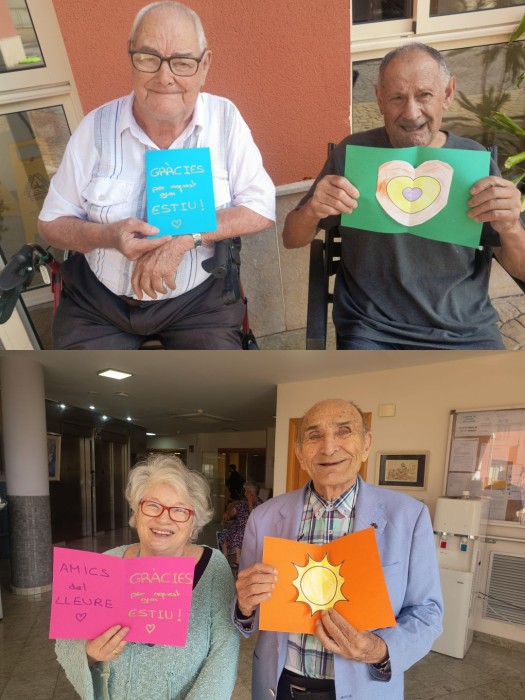 GRÀCIES
per aquest
ESTIU!
AMICS
del
LLEURE
GRÀCIES
per aquest
ESTIU!